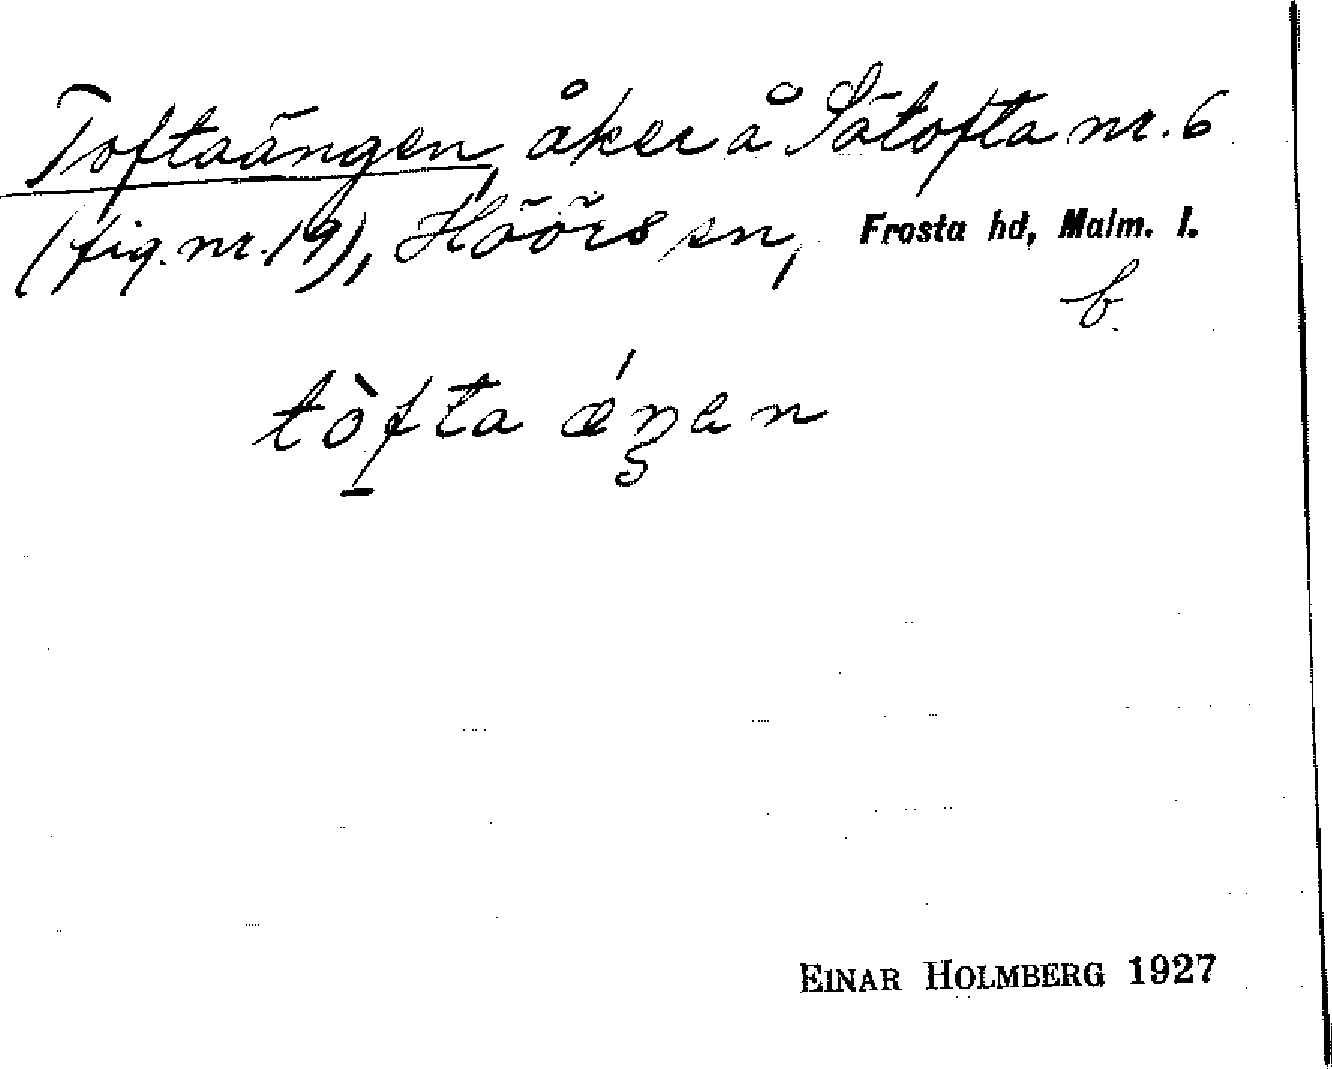 Toftaängen, åker å Sätofta nr. 6
(fig. nr. 19), Höörs sn, Frosta hd, Malm. l.
b.
tòfta ǽŋen
EINAR HOLMBERG 1927